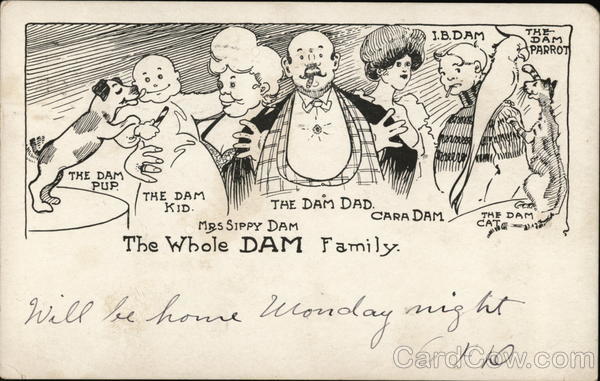 I.B. DAM
THE DAM PARROT
THE DAM PUP.
THE DAM KID.
MRS SIPPY DAM
THE DAM DAD.
CARA DAM
THE DAM CAT.
The Whole DAM Family.
Will be home Monday night
CardCow.com